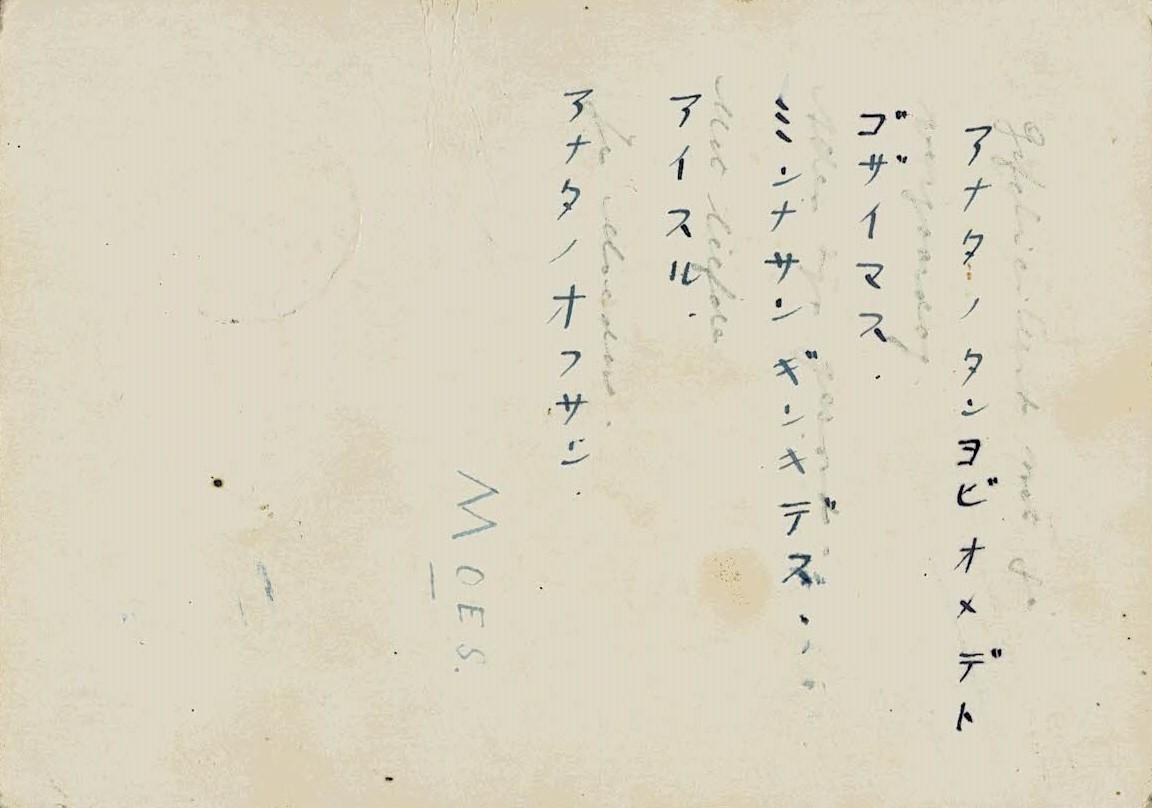 アナタノタンヨビオメデト
Gefeliciteerd met je
ゴザイマス
verjaardag
ミンナサンギンキデス...
Alles
アイスル.
Met liefde
アナタノオフサン.
MOES.